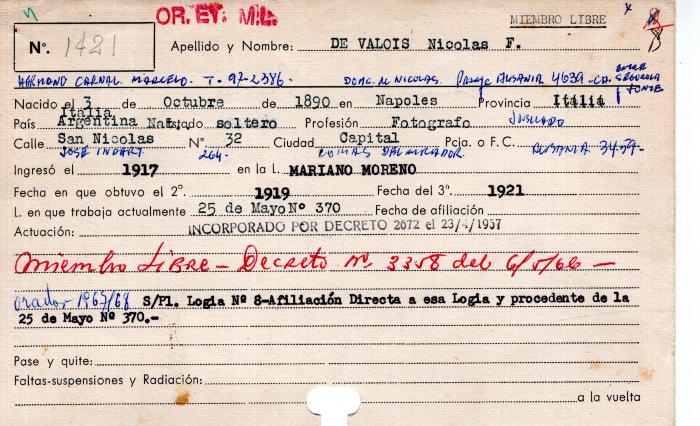 OR. EV. M.L. MIEMBRO LIBRE
Nº. 1421 Apellido y Nombre: DE VALOIS Nicolas F.
HERMANO CARNAL MARCELO. T. 97-2386. DOMIC. DE NICOLAS. Pasaje AUSANIA 4639 - CA. ENTRE SEGUROLA Y
Nacido el 3 de Octubre de 1890 en Napoles Provincia Italia
Italia
País Argentina Nat. Estado soltero Profesión Fotografo JUBILADO
Calle San Nicolas N° 32 Ciudad Capital Pcja. o F.C.
JOSE INDART 264. LOMAS DEL MIRADOR. AUSANIA 3437.
Ingresó el 1917 en la L. MARIANO MORENO
Fecha en que obtuvo el 2º. 1919 Fecha del 3º. 1921
L. en que trabaja actualmente 25 de Mayo Nº 370 Fecha de afiliación
Actuación: INCORPORADO POR DECRETO 2672 el 23/4/1957
Miembro LIBRE - Decreto nº. 3358 del 6/5/66 -
Orador 1965/68 S/Pl. Logia Nº 8-Afiliación Directa a esa Logia y procedente de la
25 de Mayo Nº 370.-
Pase y quite:
Faltas-suspensiones y Radiación:
a la vuelta